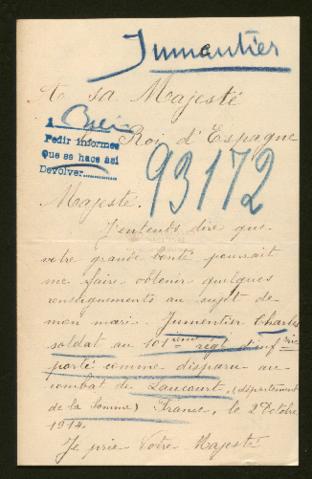 Jumentier
A sa Majesté
Roi d'Espagne
1
Pedir informes
Que se hace así
Devolver
93172
Majesté.
J'entends dire que
votre grande bonté pourrait
me faire obtenir quelques
renseignements au sujet de
mon mari. Jumentier Charles
soldat au 101eme régt d'inf rie
porté comme disparu au
combat de Laucourt, (département
de la Somme) France, le 2 Octobre
1914.
Je prie Votre Majesté